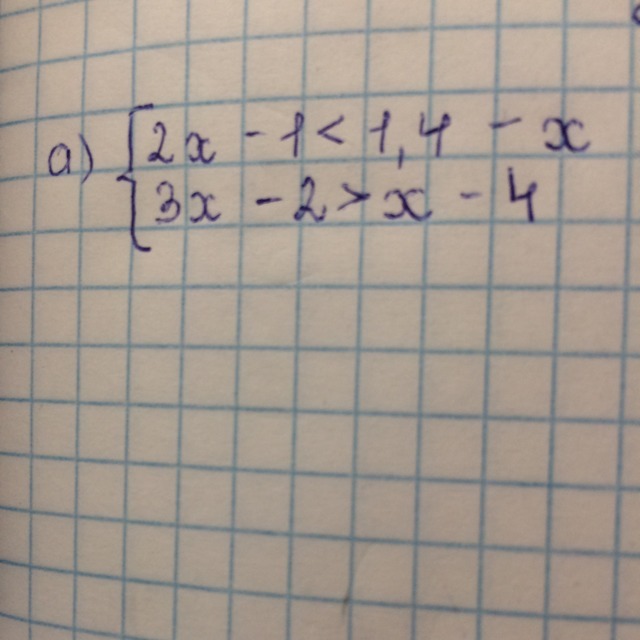 а) { 2x - 1 < 1,4 - x
3x - 2 > x - 4